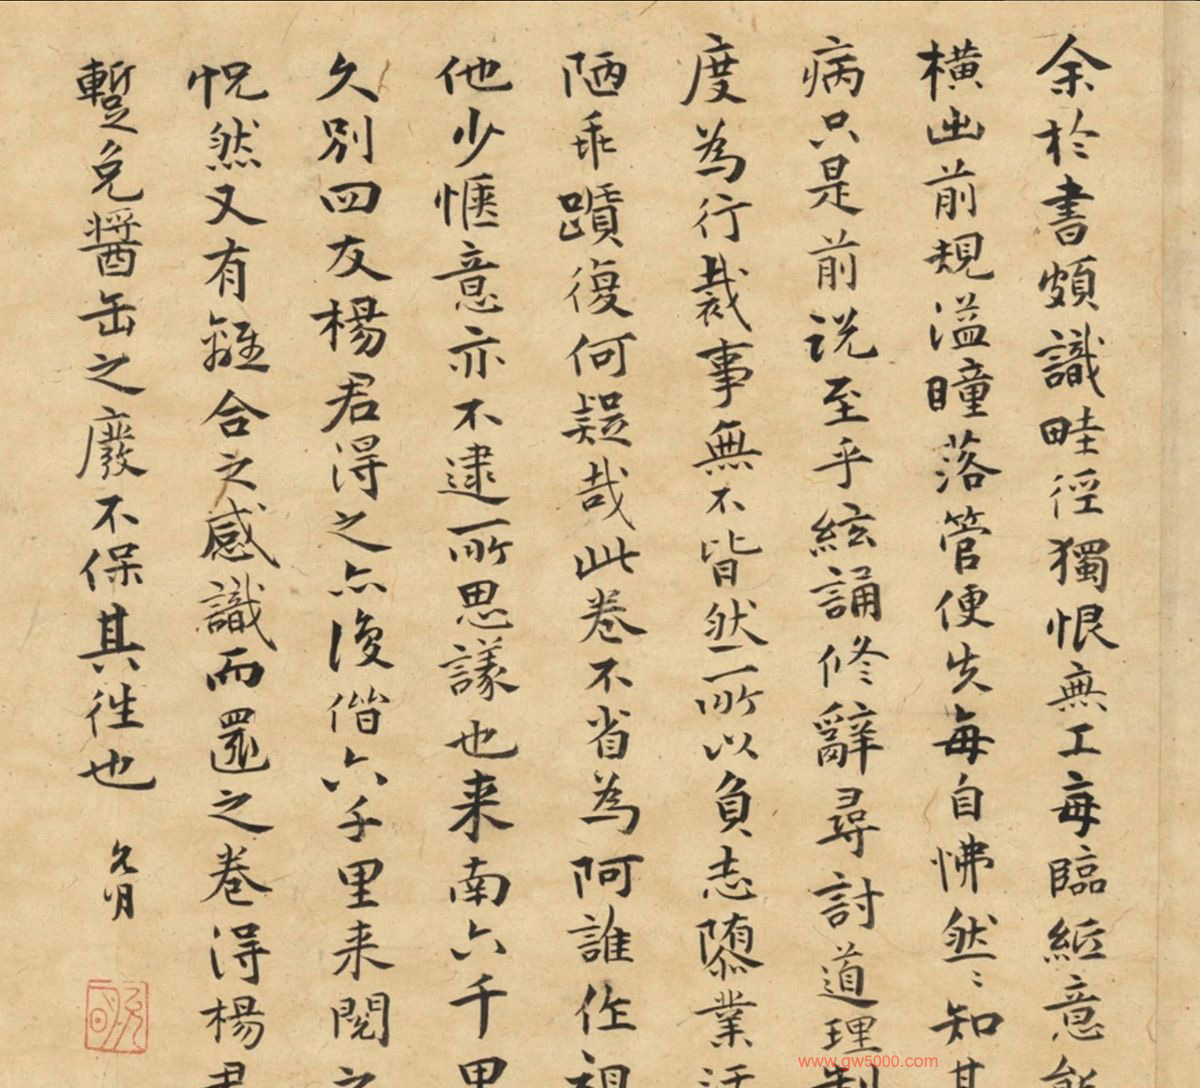 余於書頗識畦徑獨恨無工每臨紙意
橫出前規溢瞳落管便失每自怫然〻知其
病只是前說至乎絃誦修辭尋討道理制
度為行裁事無不皆然所以負志隳業
陋乖蹟復何疑哉此卷不省為阿誰作
他少愜意亦不逮所思議也来南六千里
久別四友楊君得之亦復偕六千里来閱之
怳然又有離合之感識而還之卷得楊君
暫免醬缶之廢不保其往也 允明
www.gw5000.com